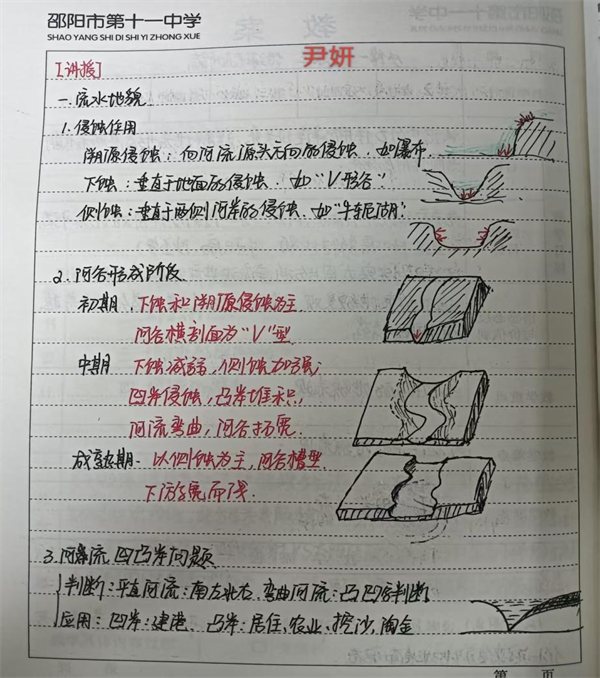 邵阳市第十一中学
SHAO YANG SHI DI SHI YI ZHONG XUE
尹妍
[讲授]
一.流水地貌
1.侵蚀作用
溯源侵蚀:向河流源头方向的侵蚀.如瀑布
下蚀:垂直于地面的侵蚀.如"V形谷"
侧蚀:垂直于两侧河岸的侵蚀.如"牛轭湖"
2.河谷形成阶段
初期.下蚀和溯源侵蚀为主
河谷横剖面为"V"型
中期 下蚀减弱,侧蚀加强;
凹岸侵蚀,凸岸堆积,
河流弯曲,河谷拓宽.
成熟期.以侧蚀为主,河谷槽型
下游宽而浅.
3.河流凹凸岸问题
判断:平直河流:南左北右.弯曲河流:凸凹岸判断
应用:凹岸:建港. 凸岸:居住,农业,挖沙,淘金
第 页